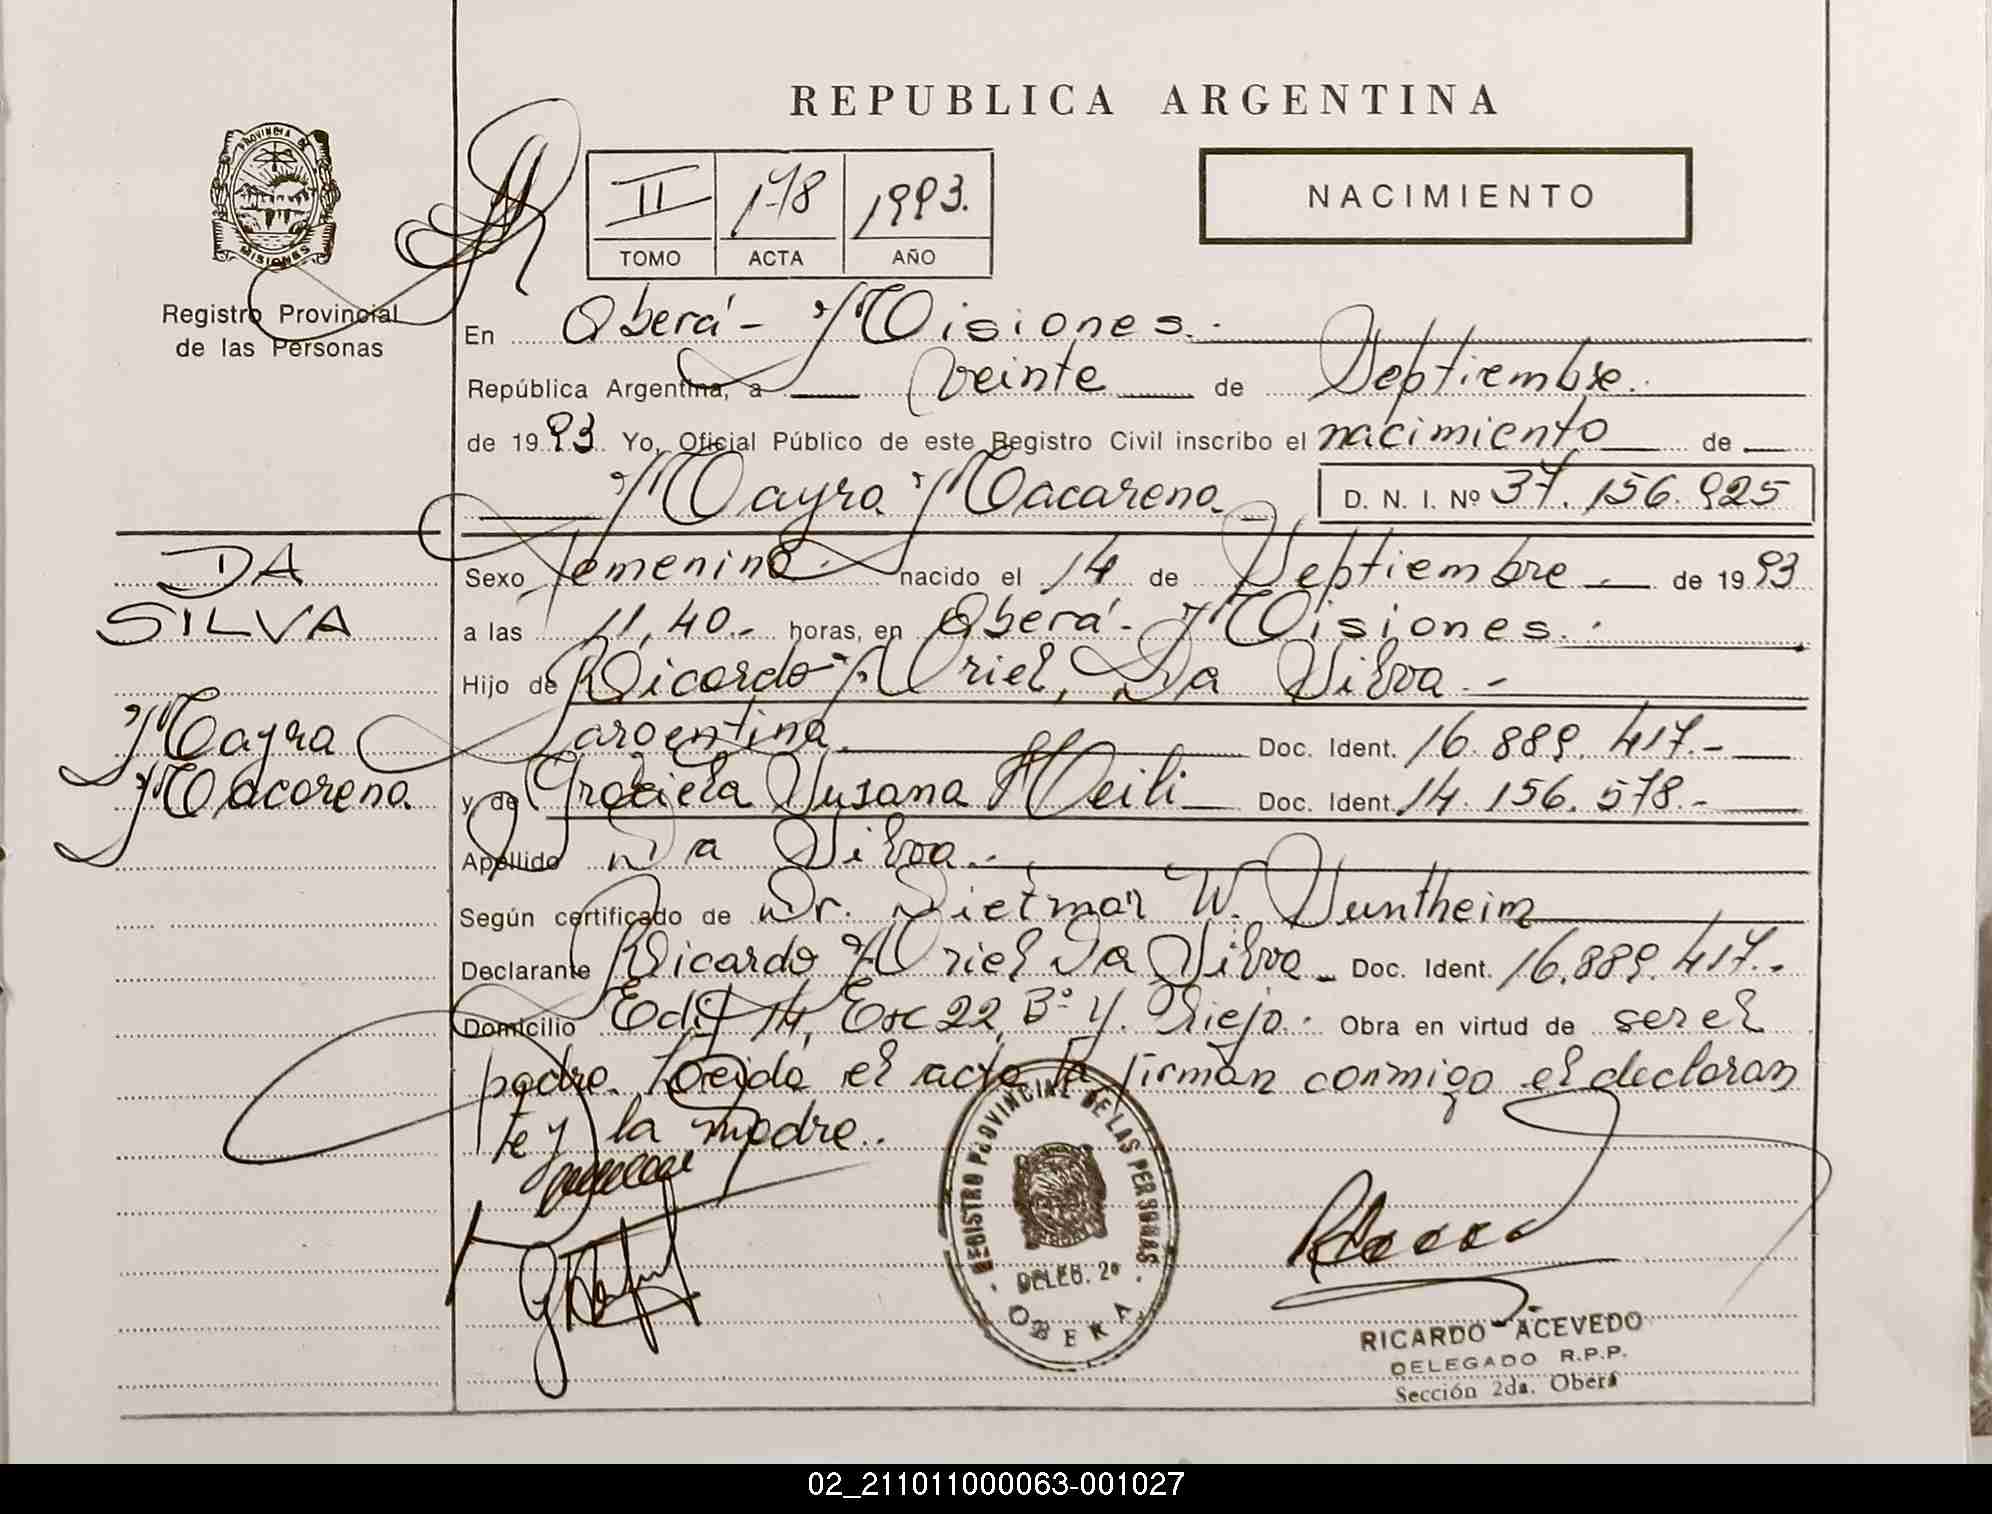 REPUBLICA ARGENTINA
PROVINCIA DE
MISIONES
Registro Provincial
de las Personas
II 178 1993.
TOMO ACTA AÑO
NACIMIENTO
En Oberá - Misiones.
República Argentina, a veinte de Septiembre.
de 1993 Yo, Oficial Público de este Registro Civil inscribo el nacimiento de
Mayra Macarena D. N. I. Nº 37.156.925
DA
SILVA
Mayra
Macarena
Sexo femenino nacido el 14 de Septiembre de 1993
a las 11,40.- horas, en Oberá - Misiones.
Hijo de Ricardo Uriel, Da Silva.-
argentina. Doc. Ident. 16.889.417.-
y de Graciela Susana Heili Doc. Ident. 14.156.578.-
Apellido Da Silva.-
Según certificado de Dr. Dietmar W. Suntheim
Declarante Ricardo Uriel Da Silva - Doc. Ident. 16.889.417.-
Domicilio Edif 14, Esc 22, Bº Y. Viejo. Obra en virtud de ser el
padre. Leída el acta la firman conmigo el declaran
te y la madre.
REGISTRO PROVINCIAL DE LAS PERSONAS
DELEG. 2º
OBERA
RICARDO ACEVEDO
DELEGADO R.P.P.
Sección 2da. Oberá
02_211011000063-001027